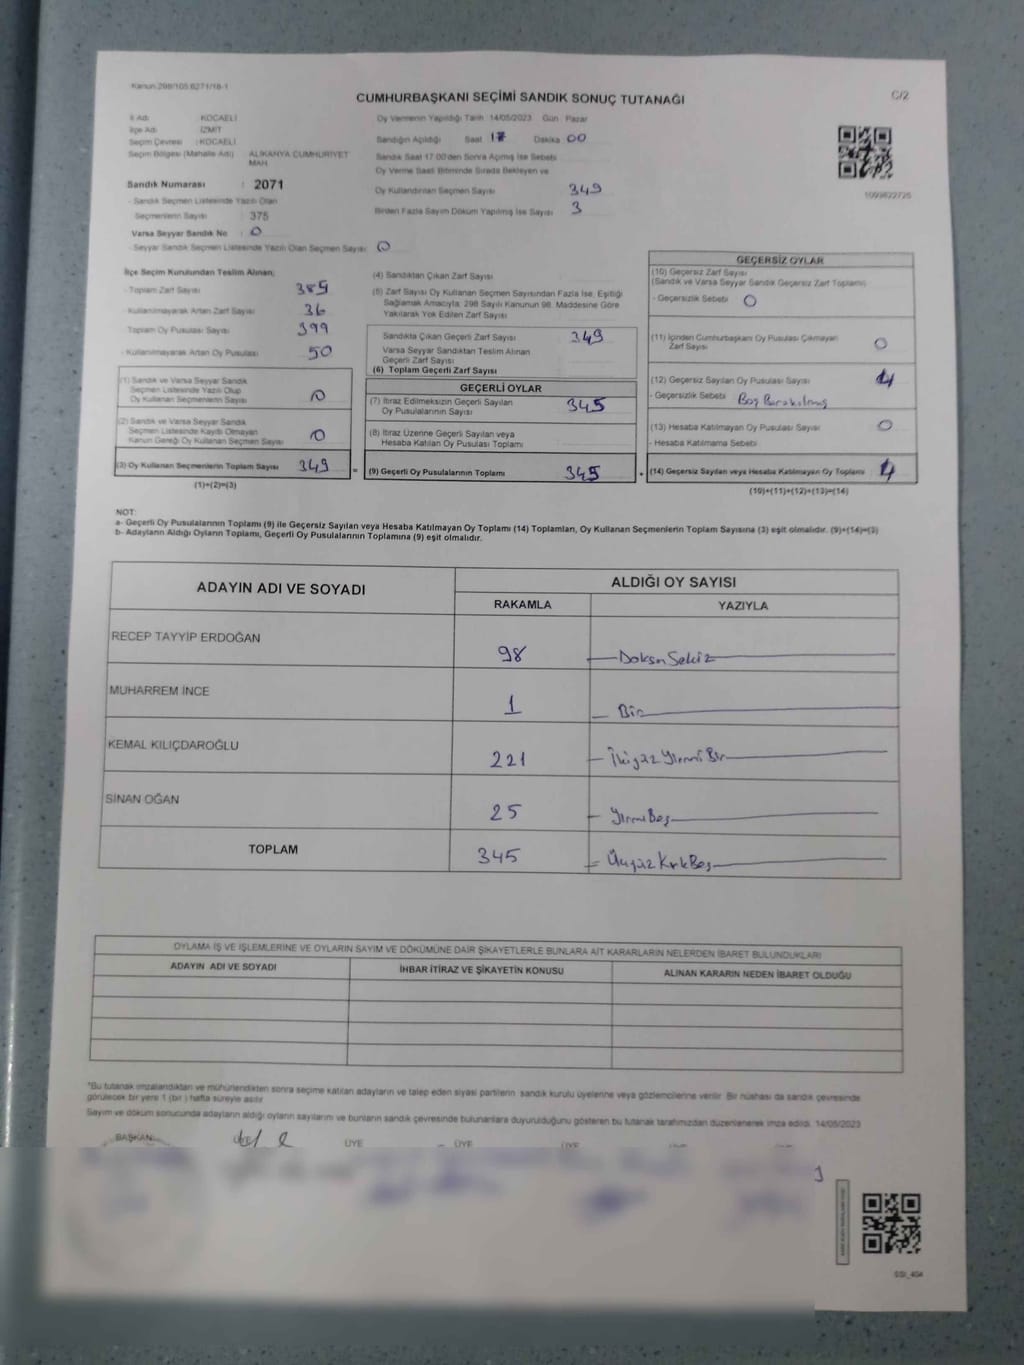 Kanun:298/105;6271/18-1
CUMHURBAŞKANI SEÇİMİ SANDIK SONUÇ TUTANAĞI
C/2
İl Adı : KOCAELİ
İlçe Adı : İZMİT
Seçim Çevresi : KOCAELİ
Seçim Bölgesi (Mahalle Adı) : ALİKAHYA CUMHURİYET
MAH.
Sandık Numarası : 2071
- Sandık Seçmen Listesinde Yazılı Olan
Seçmenlerin Sayısı : 375
Varsa Seyyar Sandık No : 0
- Seyyar Sandık Seçmen Listesinde Yazılı Olan Seçmen Sayısı: 0
Oy Vermenin Yapıldığı Tarih 14/05/2023 Gün : Pazar
Sandığın Açıldığı Saat 17 Dakika 00
Sandık Saat 17.00'den Sonra Açımış İse Sebebi
Oy Verme Saati Bitiminde Sırada Bekleyen ve
Oy Kullandırılan Seçmen Sayısı 349
Birden Fazla Sayım Döküm Yapılmış İse Sayısı 3
1099822726
İlçe Seçim Kurulundan Teslim Alınan;
- Toplam Zarf Sayısı 385
- Kullanılmayarak Artan Zarf Sayısı 36
Toplam Oy Pusulası Sayısı 399
- Kullanılmayarak Artan Oy Pusulası 50
(1) Sandık ve Varsa Seyyar Sandık
Seçmen Listesinde Yazılı Olup
Oy Kullanan Seçmenlerin Sayısı 0
(2) Sandık ve Varsa Seyyar Sandık
Seçmen Listesinde Kayıtlı Olmayan
Kanun Gereği Oy Kullanan Seçmen Sayısı 0
(3) Oy Kullanan Seçmenlerin Toplam Sayısı 349 =
(1)+(2)=(3)
(4) Sandıktan Çıkan Zarf Sayısı
(5) Zarf Sayısı Oy Kullanan Seçmen Sayısından Fazla İse, Eşitliği
Sağlamak Amacıyla; 298 Sayılı Kanunun 98. Maddesine Göre
Yakılarak Yok Edilen Zarf Sayısı
Sandıkta Çıkan Geçerli Zarf Sayısı 349
Varsa Seyyar Sandıktan Teslim Alınan
Geçerli Zarf Sayısı
(6) Toplam Geçerli Zarf Sayısı
GEÇERLİ OYLAR
(7) İtiraz Edilmeksizin Geçerli Sayılan
Oy Pusulalarının Sayısı 345
(8) İtiraz Üzerine Geçerli Sayılan veya
Hesaba Katılan Oy Pusulası Toplamı
(9) Geçerli Oy Pusulalarının Toplamı 345 +
GEÇERSİZ OYLAR
(10) Geçersiz Zarf Sayısı
(Sandık ve Varsa Seyyar Sandık Geçersiz Zarf Toplamı)
- Geçersizlik Sebebi 0
(11) İçinden Cumhurbaşkanı Oy Pusulası Çıkmayan
Zarf Sayısı 0
(12) Geçersiz Sayılan Oy Pusulası Sayısı 4
- Geçersizlik Sebebi Boş Bırakılmış
(13) Hesaba Katılmayan Oy Pusulası Sayısı 0
- Hesaba Katılmama Sebebi
(14) Geçersiz Sayılan veya Hesaba Katılmayan Oy Toplamı 4
(10)+(11)+(12)+(13)=(14)
NOT:
a- Geçerli Oy Pusulalarının Toplamı (9) ile Geçersiz Sayılan veya Hesaba Katılmayan Oy Toplamı (14) Toplamları, Oy Kullanan Seçmenlerin Toplam Sayısına (3) eşit olmalıdır. (9)+(14)=(3)
b- Adayların Aldığı Oyların Toplamı, Geçerli Oy Pusulalarının Toplamına (9) eşit olmalıdır.
ADAYIN ADI VE SOYADI
ALDIĞI OY SAYISI
RAKAMLA YAZIYLA
RECEP TAYYİP ERDOĞAN 98 Doksan Sekiz
MUHARREM İNCE 1 Bir
KEMAL KILIÇDAROĞLU 221 İkiyüz Yirmi Bir
SİNAN OĞAN 25 Yirmi Beş
TOPLAM 345 Üçyüz Kırk Beş
OYLAMA İŞ VE İŞLEMLERİNE VE OYLARIN SAYIM VE DÖKÜMÜNE DAİR ŞİKAYETLERLE BUNLARA AİT KARARLARIN NELERDEN İBARET BULUNDUKLARI
ADAYIN ADI VE SOYADI İHBAR İTİRAZ VE ŞİKAYETİN KONUSU ALINAN KARARIN NEDEN İBARET OLDUĞU
*Bu tutanak imzalandıktan ve mühürlendikten sonra seçime katılan adayların ve talep eden siyasi partilerin sandık kurulu üyelerine veya gözlemcilerine verilir. Bir nüshası da sandık çevresinde
görülecek bir yere 1 (bir) hafta süreyle asılır
Sayım ve döküm sonucunda adayların aldığı oyların sayılarını ve bunların sandık çevresinde bulunanlara duyurulduğunu gösteren bu tutanak tarafımızdan düzenlenerek imza edildi. 14/05/2023
BAŞKAN ÜYE ÜYE ÜYE
SSI_404